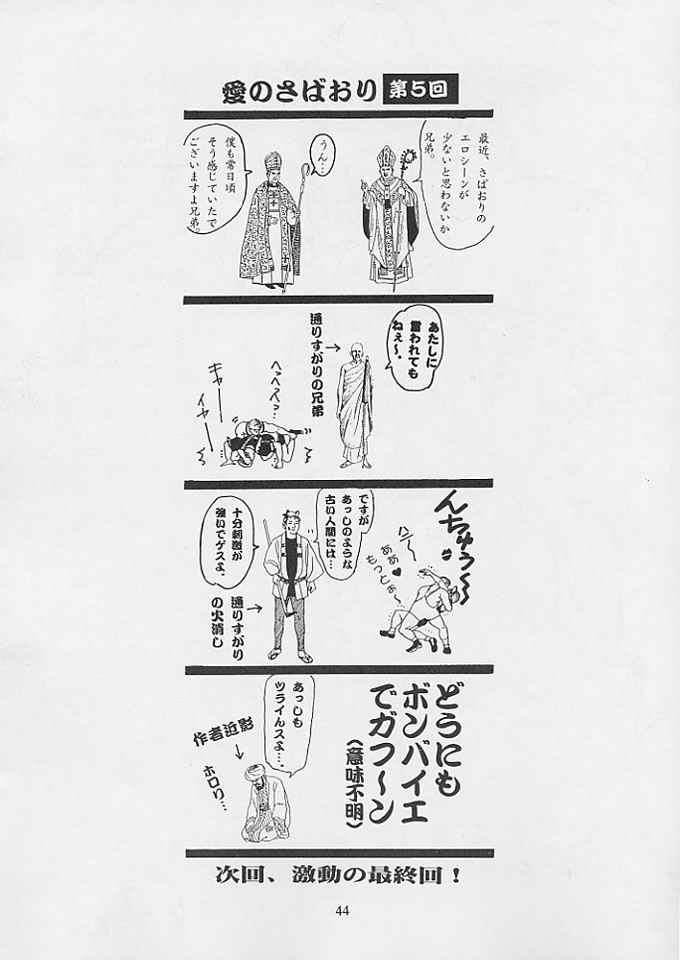 愛のさばおり 第5回
最近、さばおりの
エロシーンが
少ないと思わないか
兄弟。
うん…
僕も常日頃
そう感じていたで
ございますよ兄弟。
あたしに
言われても
ねぇ〜。
通りすがりの兄弟→
へっへっへっ…
キャーーー
イヤーーー
んちゅう〜〜
ハァ〜
ああ♥
もっとぉ〜
ですが
あっしのような
古い人間には…
十分刺激が
強いでゲスよ。
通りすがり
の火消し
→
どうにも
ボンバイエ
でガフ〜ン
(意味不明)
あっしも
ツライんスよ…。
作者近影
↓
ホロリ…
次回、激動の最終回!
44